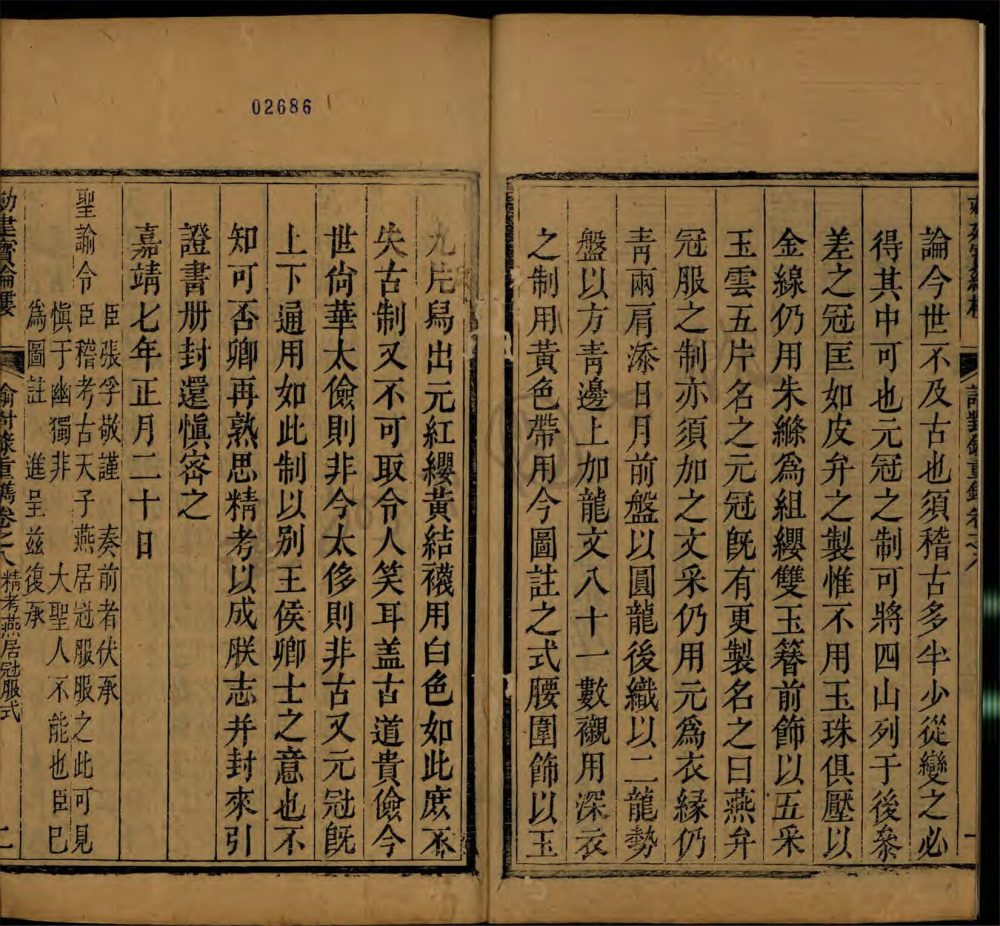 論今世不及古也須稽古多半少從變之必
得其中可也元冠之制可將四山列于後叅
差之冠匡如皮弁之製惟不用玉珠俱壓以
金線仍用朱縧爲組纓雙玉簪前飾以五采
玉雲五片名之元冠旣有更製名之曰燕弁
冠服之制亦須加之文采仍用元爲衣緣仍
靑兩肩添日月前盤以圓龍後織以二龍勢
盤以方靑邊上加龍文八十一數襯用深衣
之制用黃色帶用今圖註之式腰圍飾以玉
02686
九片舄出元紅纓黃結襪用白色如此庶不
失古制又不可取令人笑耳盖古道貴儉今
世尙華太儉則非今太侈則非古又元冠旣
上下通用如此制以別王侯卿士之意也不
知可否卿再熟思精考以成朕志并封來引
證書册封還愼宻之
嘉靖七年正月二十日
臣張孚敬謹 奏前者伏承
聖諭令臣稽考古天子燕居冠服服之此可見
愼于幽獨非 大聖人不能也臣已
爲圖註 進呈兹復承
勅建寳綸樓 諭對錄重鐫卷之八 精考燕居冠服式 二